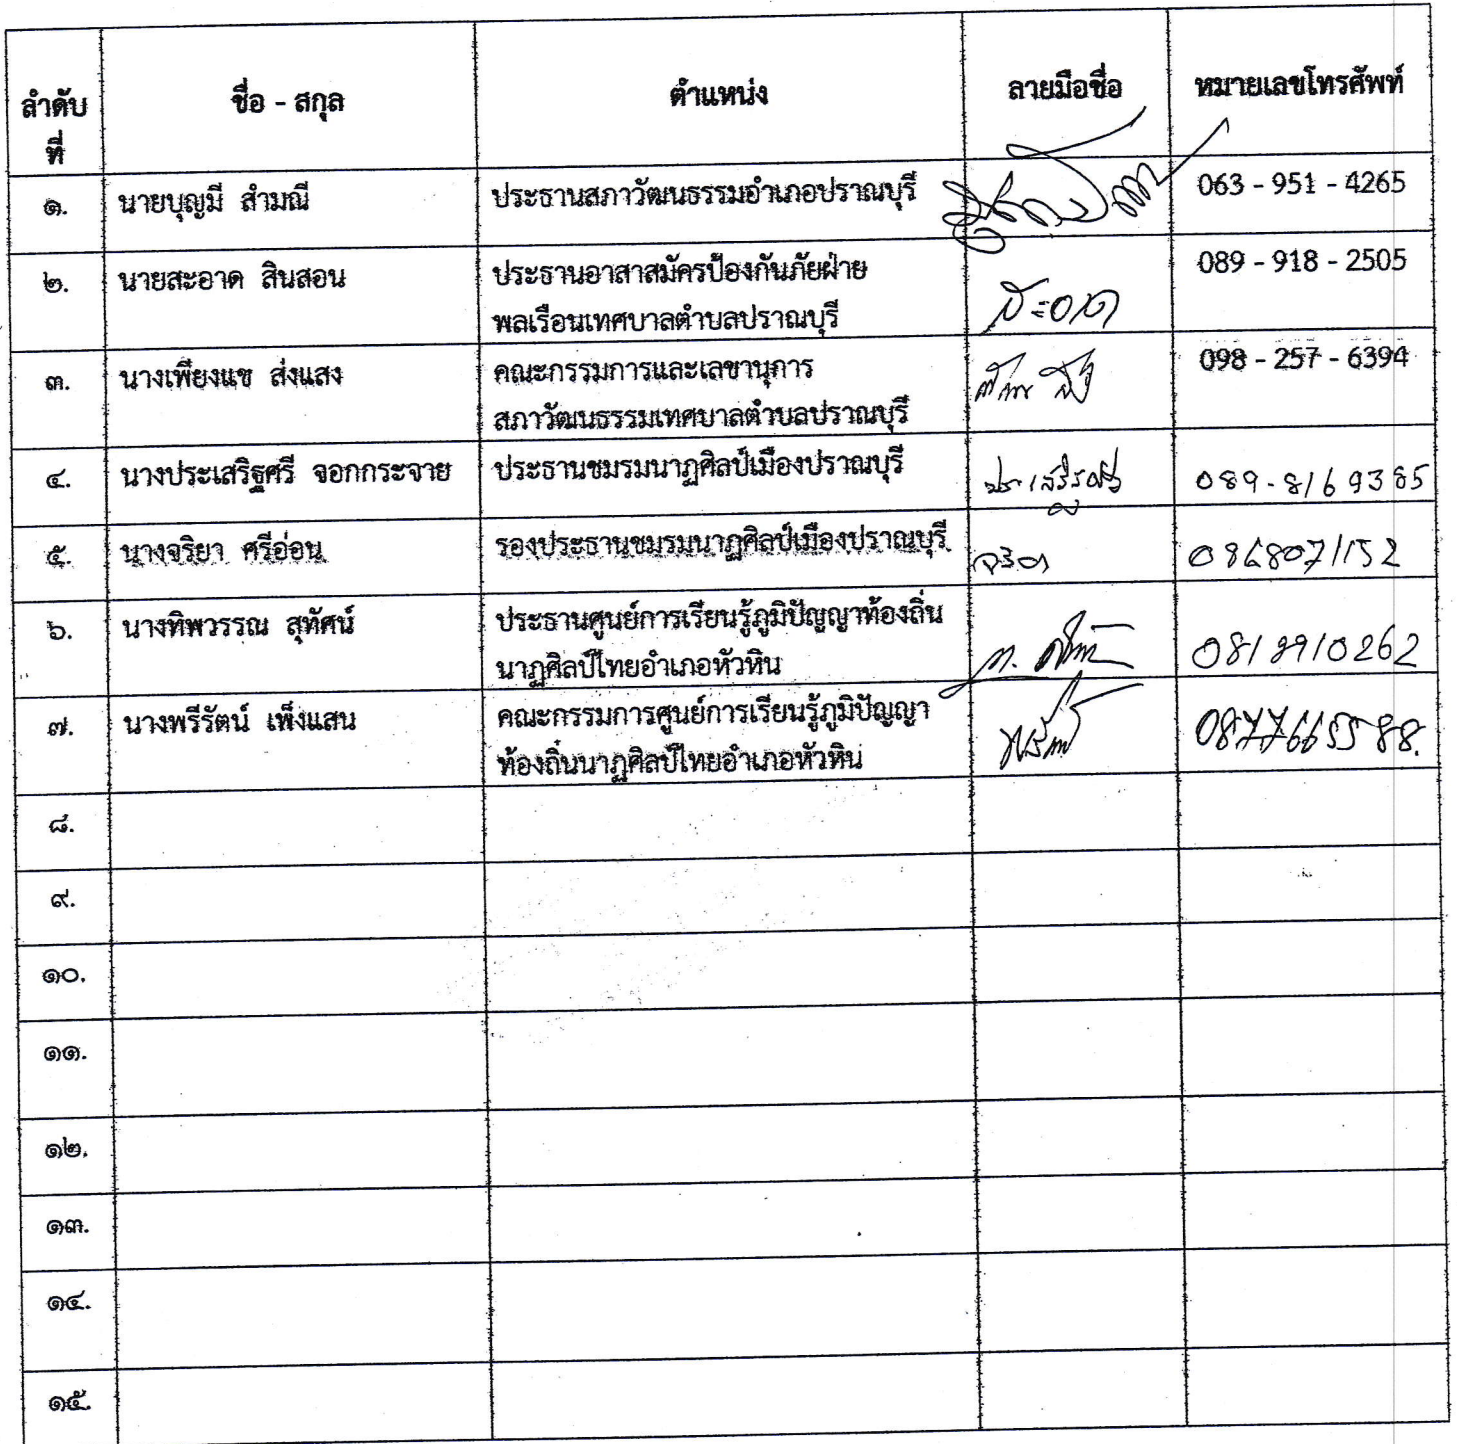 ลำดับ
ที่
ชื่อ - สกุล
ตำแหน่ง
ลายมือชื่อ
หมายเลขโทรศัพท์
๑.
นายบุญมี สำมณี
ประธานสภาวัฒนธรรมอำเภอปราณบุรี
063 - 951 - 4265
๒.
นายสะอาด สินสอน
ประธานอาสาสมัครป้องกันภัยฝ่าย
พลเรือนเทศบาลตำบลปราณบุรี
สะอาด
089 - 918 - 2505
๓.
นางเพียงแข ส่งแสง
คณะกรรมการและเลขานุการ
สภาวัฒนธรรมเทศบาลตำบลปราณบุรี
098 - 257 - 6394
๔.
นางประเสริฐศรี จอกกระจาย
ประธานชมรมนาฏศิลป์เมืองปราณบุรี
ประเสริฐศรี
089-8169385
๕.
นางจริยา ศรีอ่อน
รองประธานชมรมนาฏศิลป์เมืองปราณบุรี
0868071152
๖.
นางทิพวรรณ สุทัศน์
ประธานศูนย์การเรียนรู้ภูมิปัญญาท้องถิ่น
นาฏศิลป์ไทยอำเภอหัวหิน
๗.
นางพรีรัตน์ เพ็งแสน
คณะกรรมการศูนย์การเรียนรู้ภูมิปัญญา
ท้องถิ่นนาฏศิลป์ไทยอำเภอหัวหิน
0877665588.
๘.
๙.
๑๐.
๑๑.
๑๒.
๑๓.
๑๔.
๑๕.